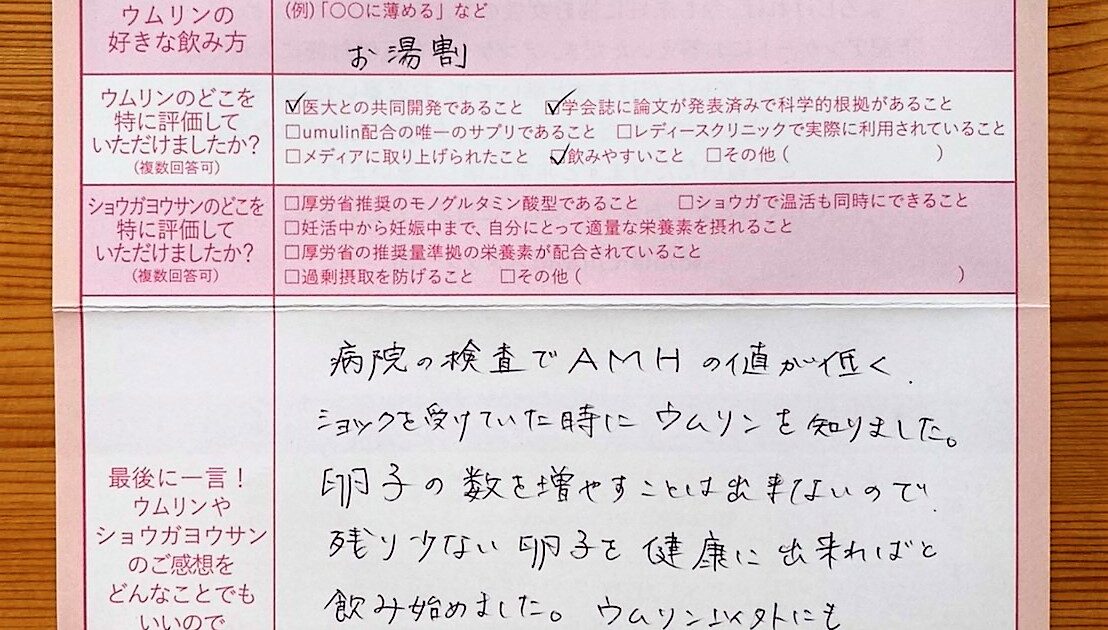 ウムリンの
好きな飲み方
(例)「〇〇に薄める」など
お湯割
ウムリンのどこを
特に評価して
いただけましたか?
(複数回答可)
☑医大との共同開発であること ☑学会誌に論文が発表済みで科学的根拠があること
□umulin配合の唯一のサプリであること □レディースクリニックで実際に利用されていること
□メディアに取り上げられたこと ☑飲みやすいこと □その他( )
ショウガヨウサンのどこを
特に評価して
いただけましたか?
(複数回答可)
□厚労省推奨のモノグルタミン酸型であること □ショウガで温活も同時にできること
□妊活中から妊娠中まで、自分にとって適量な栄養素を摂れること
□厚労省の推奨量準拠の栄養素が配合されていること
□過剰摂取を防げること □その他( )
最後に一言!
ウムリンや
ショウガヨウサン
のご感想を
どんなことでも
いいので
病院の検査でAMHの値が低く
ショックを受けていた時にウムリンを知りました。
卵子の数を増やすことは出来ないので
残り少ない卵子を健康に出来ればと
飲み始めました。ウムリン以外にも